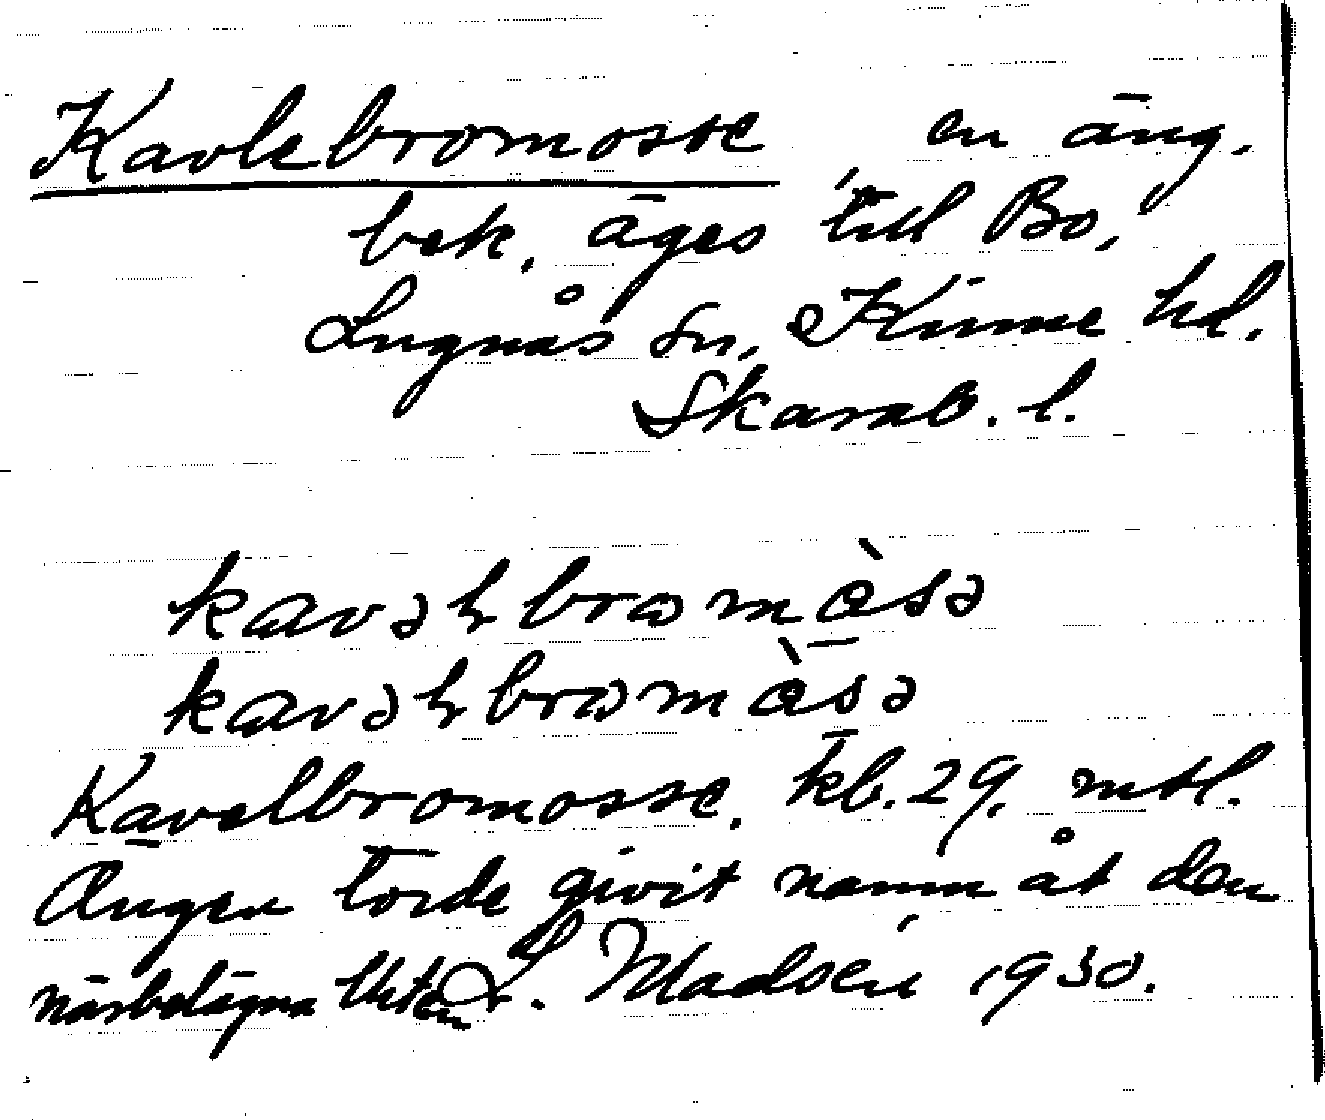 Kavlebromosse, en äng.
bek. äges till Bo,
Lugnås sn, Kinne hd.
Skarab. l.
kavəlbromosə
kavəlbromosə
Kavelbromosse. kb. 29, mtl.
Ängen torde givit namn åt den
närbelägna L. Madsen 1930.